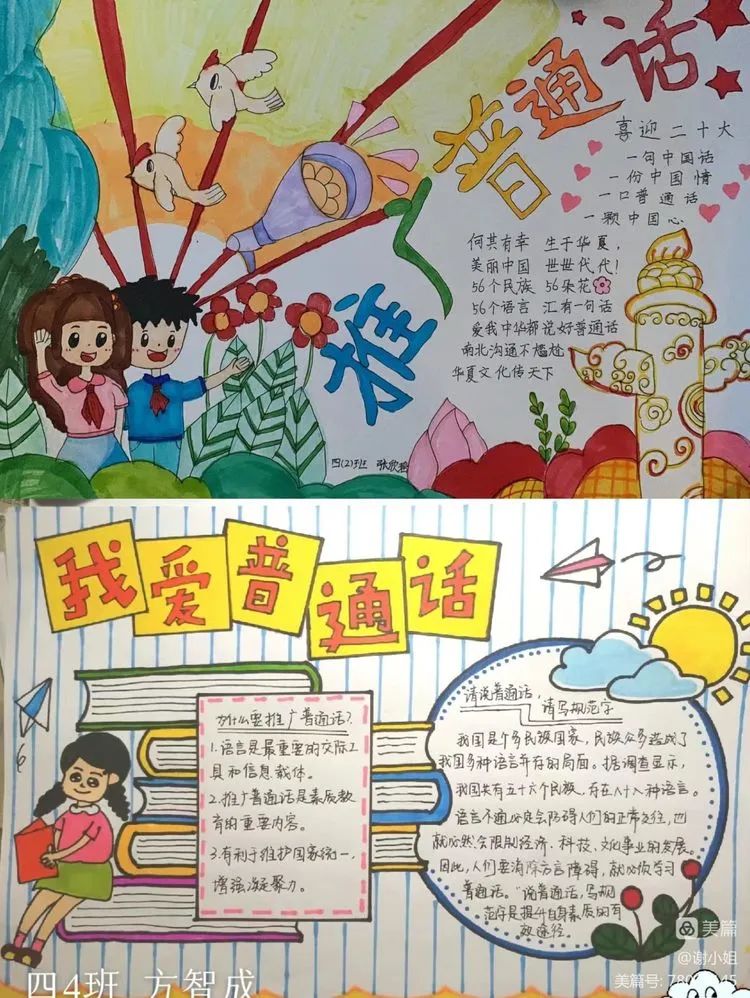 推广普通话
喜迎二十大
一句中国话
一份中国情
一口普通话
一颗中国心
何其有幸 生于华夏,
美丽中国 世世代代!
56个民族 56朵花
56个语言 汇有一句话
爱我中华都说好普通话
南北沟通不尴尬
华夏文化传天下
四(2)班
我爱普通话
为什么要推广普通话?
1.语言是最重要的交际工
具和信息载体。
2.推广普通话是素质教
育的重要内容。
3.有利于维护国家统一,
增强凝聚力。
请说普通话,
请写规范字
我国是个多民族国家,民族众多造成了
我国多种语言并存的局面。据调查显示,
我国共有五十六个民族,存在八十八种语言。
语言不通必定会阻碍人们的正常交往,也
就必然会限制经济、科技、文化事业的发展。
因此,人们要消除方言障碍,就必须学习
普通话。“说普通话,写规
范字是提升自身素质的有
效途径。
四4班 方智成
美篇
@谢小姐
美篇号: